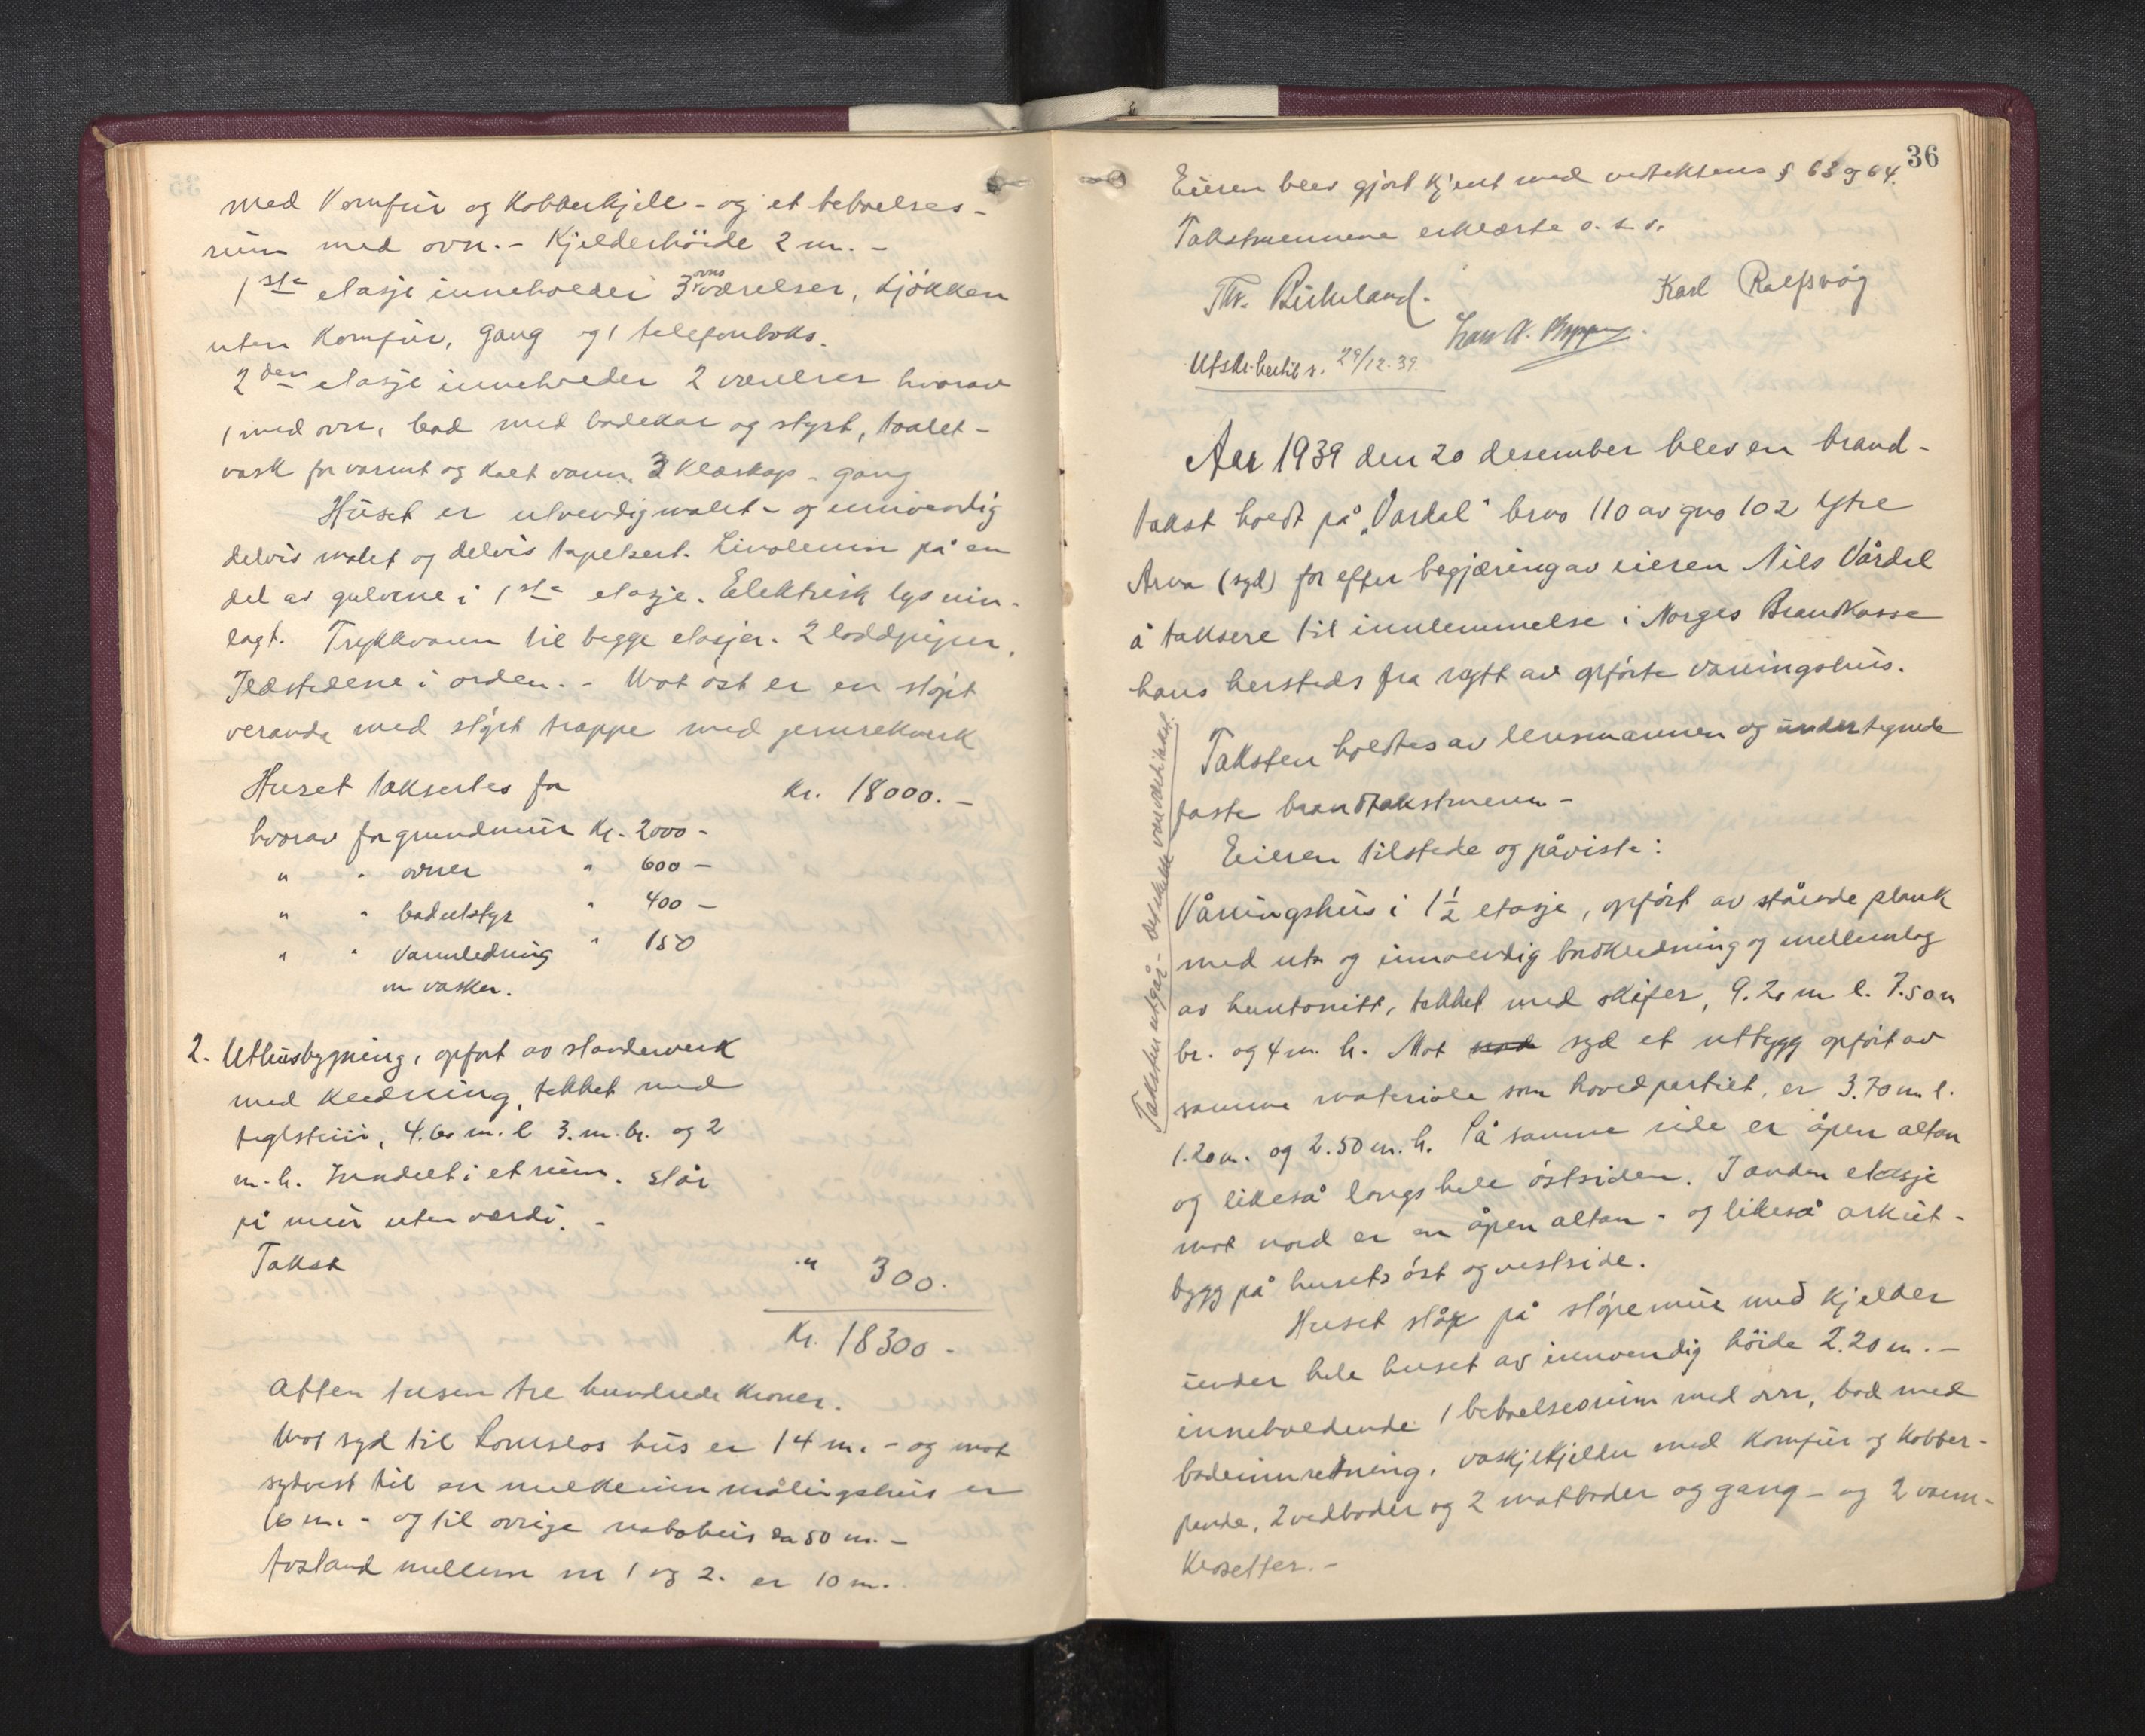 med Komfur og Kobberkjele - og et beboelses-
rum med ovn. - Kjelderhöide 2 m. -
1ste etasje inneholder 3 ovns værelser, kjökken
uten Komfur, gang og 1 telefonboks.
2den etasje inneholder 2 værelser hvorav
1 med ovn, bad med badekar og styrt, toalet-
vask for varmt og kalt vann. 3 Klæskap - gang
Huset er utvendig malet - og innvendig
delvis malet og delvis tapetsert. Linoleum på en
del av gulvene i 1ste etasje. Elektrisk lys inn-
lagt. Trykkvann til begge etasjer. 2 loddpiper.
Ildstedene i orden. - Mot öst er en stöpt
veranda med stöpt trappe med jernrekverk
Huset taksertes for Kr. 18000.-
hvorav for grundmur Kr. 2000 -
" " ovner " 600 -
" " badeutstyr " 400 -
" " Vannledning " 150
m vasker.
2. Uthusbygning, opfört av standerverk
med kledning, tekket med
teglstein, 4.60 m. l 3. m. br. og 2
m. h. Inndelt i et rum. Står
på mur uten værdi. -
Takst " 300.
Kr. 18300 -
Atten tusen tre hundrede kroner.
Mot syd til Lomslos hus er 14 m. - og mot
sydvest til en målingshus er
16 m. - og til övrige nabohus ca 50 m. -
Avstand mellem nr 1 og 2. er 10 m.
36
Eieren blev gjort kjent med vedtektens § 63 og 64.
Takstmennene erklærte o. s. v.
Th. Birkeland. Karl Rolfsvåg
Utskr. 29/12.39.
Aar 1939 den 20 desember blev en brand-
takst holdt på "Vardal" brno 110 av gno 102 Ytre
Arna (syd) for efter begjæring av eieren Nils Vårdal
å taksere til innlemmelse i Norges Brandkasse
hans hersteds fra nytt av opförte våningshus.
Taksten holdtes av lensmannen og undertegnede
faste brandtakstmenn -
Eieren tilstede og påviste:
Våningshus i 1½ etasje, opfört av stående plank
med ut- og innvendig bordkledning og mellemlag
av huntonitt, tekket med skifer, 9.20 m l. 7.50 m
br. og 4 m. h. Mot nord syd et utbygg opfört av
samme materiale som hovedpartiet, er 3.70 m l.
1.20 m. og 2.50 m. h. På samme side er åpen altan
og likeså langs hele östsiden. I anden etasje
mot nord er en åpen altan - og likeså arkut-
bygg på husets öst og vestside.
Huset står på stöpemur med kjelder
under hele huset av innvendig höide 2.20 m. -
inneholdende 1 beboelsesrum med ovn, bad med
badeinnretning, vaskjekjelder med Komfur og Kobber-
pande, 2 vedboder og 2 matboder og gang - og 2 vann-
klosetter. -
Taksten utgår -